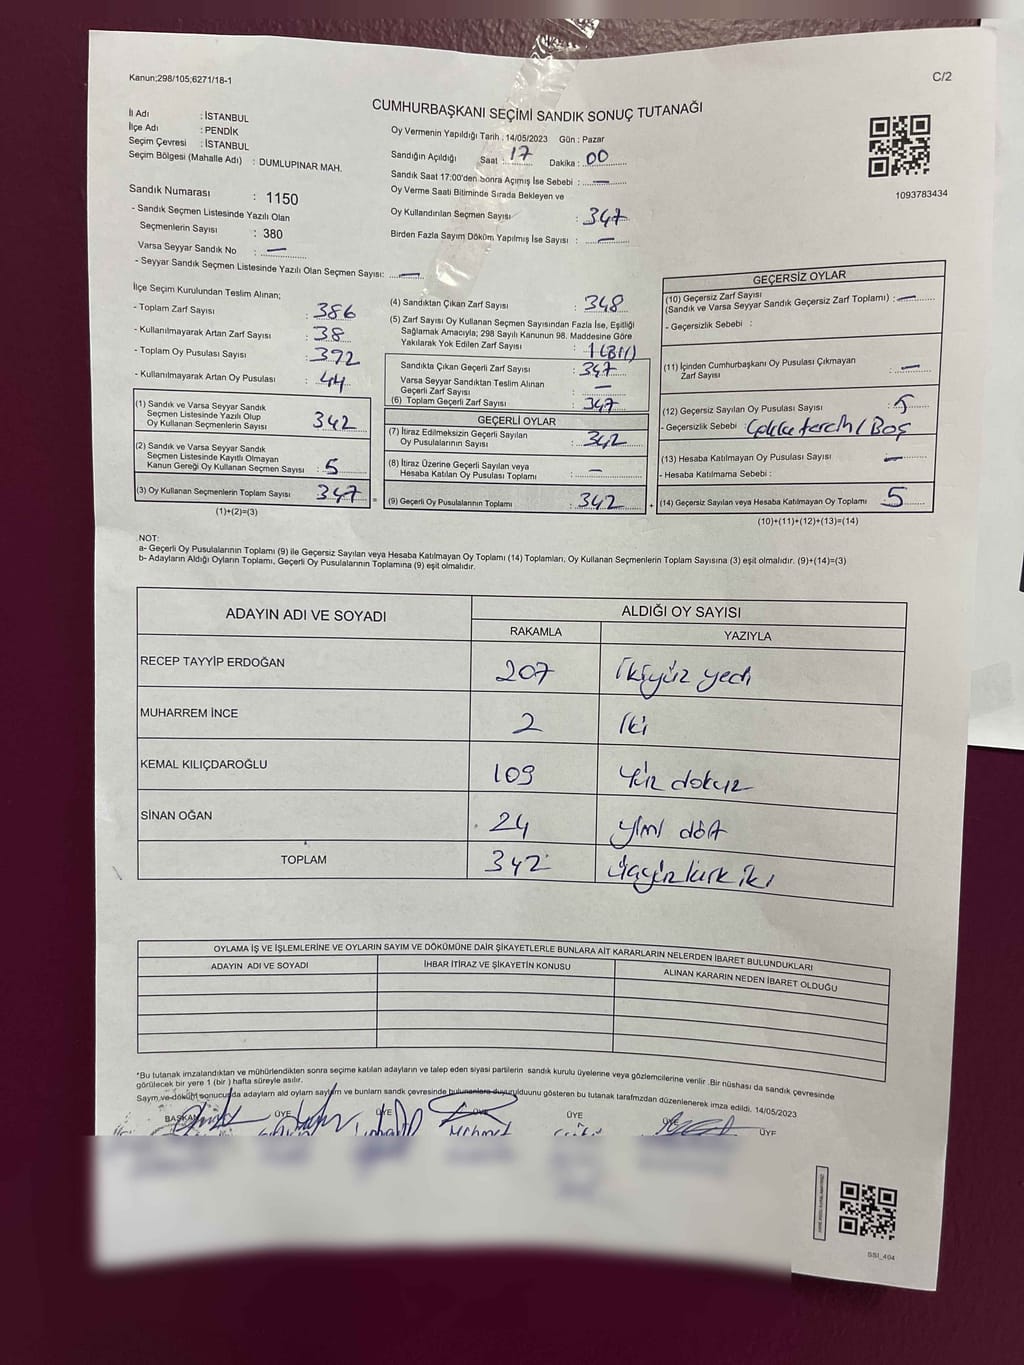 Kanun;298/105,6271/18-1
C/2
CUMHURBAŞKANI SEÇİMİ SANDIK SONUÇ TUTANAĞI
İl Adı : İSTANBUL
İlçe Adı : PENDİK
Seçim Çevresi : İSTANBUL
Seçim Bölgesi (Mahalle Adı) : DUMLUPINAR MAH.
Oy Vermenin Yapıldığı Tarih : 14/05/2023 Gün : Pazar
Sandığın Açıldığı Saat : 17 Dakika : 00
Sandık Saat 17:00'den Sonra Açımış İse Sebebi : —
Oy Verme Saati Bitiminde Sırada Bekleyen ve
Oy Kullandırılan Seçmen Sayısı : 347
Birden Fazla Sayım Döküm Yapılmış İse Sayısı : —
1093783434
Sandık Numarası : 1150
- Sandık Seçmen Listesinde Yazılı Olan
Seçmenlerin Sayısı : 380
Varsa Seyyar Sandık No : —
- Seyyar Sandık Seçmen Listesinde Yazılı Olan Seçmen Sayısı: —
İlçe Seçim Kurulundan Teslim Alınan;
- Toplam Zarf Sayısı : 386
- Kullanılmayarak Artan Zarf Sayısı : 38
- Toplam Oy Pusulası Sayısı : 392
- Kullanılmayarak Artan Oy Pusulası : 44
(1) Sandık ve Varsa Seyyar Sandık
Seçmen Listesinde Yazılı Olup
Oy Kullanan Seçmenlerin Sayısı : 342
(2) Sandık ve Varsa Seyyar Sandık
Seçmen Listesinde Kayıtlı Olmayan
Kanun Gereği Oy Kullanan Seçmen Sayısı : 5
(3) Oy Kullanan Seçmenlerin Toplam Sayısı : 347 =
(1)+(2)=(3)
(4) Sandıktan Çıkan Zarf Sayısı : 348
(5) Zarf Sayısı Oy Kullanan Seçmen Sayısından Fazla İse, Eşitliği
Sağlamak Amacıyla; 298 Sayılı Kanunun 98. Maddesine Göre
Yakılarak Yok Edilen Zarf Sayısı : 1 (Bir)
Sandıkta Çıkan Geçerli Zarf Sayısı : 347
Varsa Seyyar Sandıktan Teslim Alınan
Geçerli Zarf Sayısı : —
(6) Toplam Geçerli Zarf Sayısı : 347
GEÇERLİ OYLAR
(7) İtiraz Edilmeksizin Geçerli Sayılan
Oy Pusulalarının Sayısı : 342
(8) İtiraz Üzerine Geçerli Sayılan veya
Hesaba Katılan Oy Pusulası Toplamı : —
(9) Geçerli Oy Pusulalarının Toplamı : 342 +
GEÇERSİZ OYLAR
(10) Geçersiz Zarf Sayısı
(Sandık ve Varsa Seyyar Sandık Geçersiz Zarf Toplamı) : —
- Geçersizlik Sebebi :
(11) İçinden Cumhurbaşkanı Oy Pusulası Çıkmayan
Zarf Sayısı : —
(12) Geçersiz Sayılan Oy Pusulası Sayısı : 5
- Geçersizlik Sebebi : tercih / Boş
(13) Hesaba Katılmayan Oy Pusulası Sayısı : —
- Hesaba Katılmama Sebebi :
(14) Geçersiz Sayılan veya Hesaba Katılmayan Oy Toplamı : 5
(10)+(11)+(12)+(13)=(14)
NOT:
a- Geçerli Oy Pusulalarının Toplamı (9) ile Geçersiz Sayılan veya Hesaba Katılmayan Oy Toplamı (14) Toplamları, Oy Kullanan Seçmenlerin Toplam Sayısına (3) eşit olmalıdır. (9)+(14)=(3)
b- Adayların Aldığı Oyların Toplamı, Geçerli Oy Pusulalarının Toplamına (9) eşit olmalıdır.
ADAYIN ADI VE SOYADI ALDIĞI OY SAYISI
RAKAMLA YAZIYLA
RECEP TAYYİP ERDOĞAN 207 ikiyüz yedi
MUHARREM İNCE 2 iki
KEMAL KILIÇDAROĞLU 109 Yüz dokuz
SİNAN OĞAN 24 yirmi dört
TOPLAM 342 üçyüz kırk iki
OYLAMA İŞ VE İŞLEMLERİNE VE OYLARIN SAYIM VE DÖKÜMÜNE DAİR ŞİKAYETLERLE BUNLARA AİT KARARLARIN NELERDEN İBARET BULUNDUKLARI
ADAYIN ADI VE SOYADI İHBAR İTİRAZ VE ŞİKAYETİN KONUSU ALINAN KARARIN NEDEN İBARET OLDUĞU
*Bu tutanak imzalandıktan ve mühürlendikten sonra seçime katılan adayların ve talep eden siyasi partilerin sandık kurulu üyelerine veya gözlemcilerine verilir .Bir nüshası da sandık çevresinde
görülecek bir yere 1 (bir ) hafta süreyle asılır.
Sayım ve döküm sonucusda adayların ald oylarn sayları ve bunların sandk çevresinde bulunanlara duyurulduunu gösteren bu tutanak tarafmzdan düzenlenerek imza edildi. 14/05/2023
BAŞKAN ÜYE ÜYE ÜYE ÜYE ÜYE ÜYE
Mehmet
SSI_404